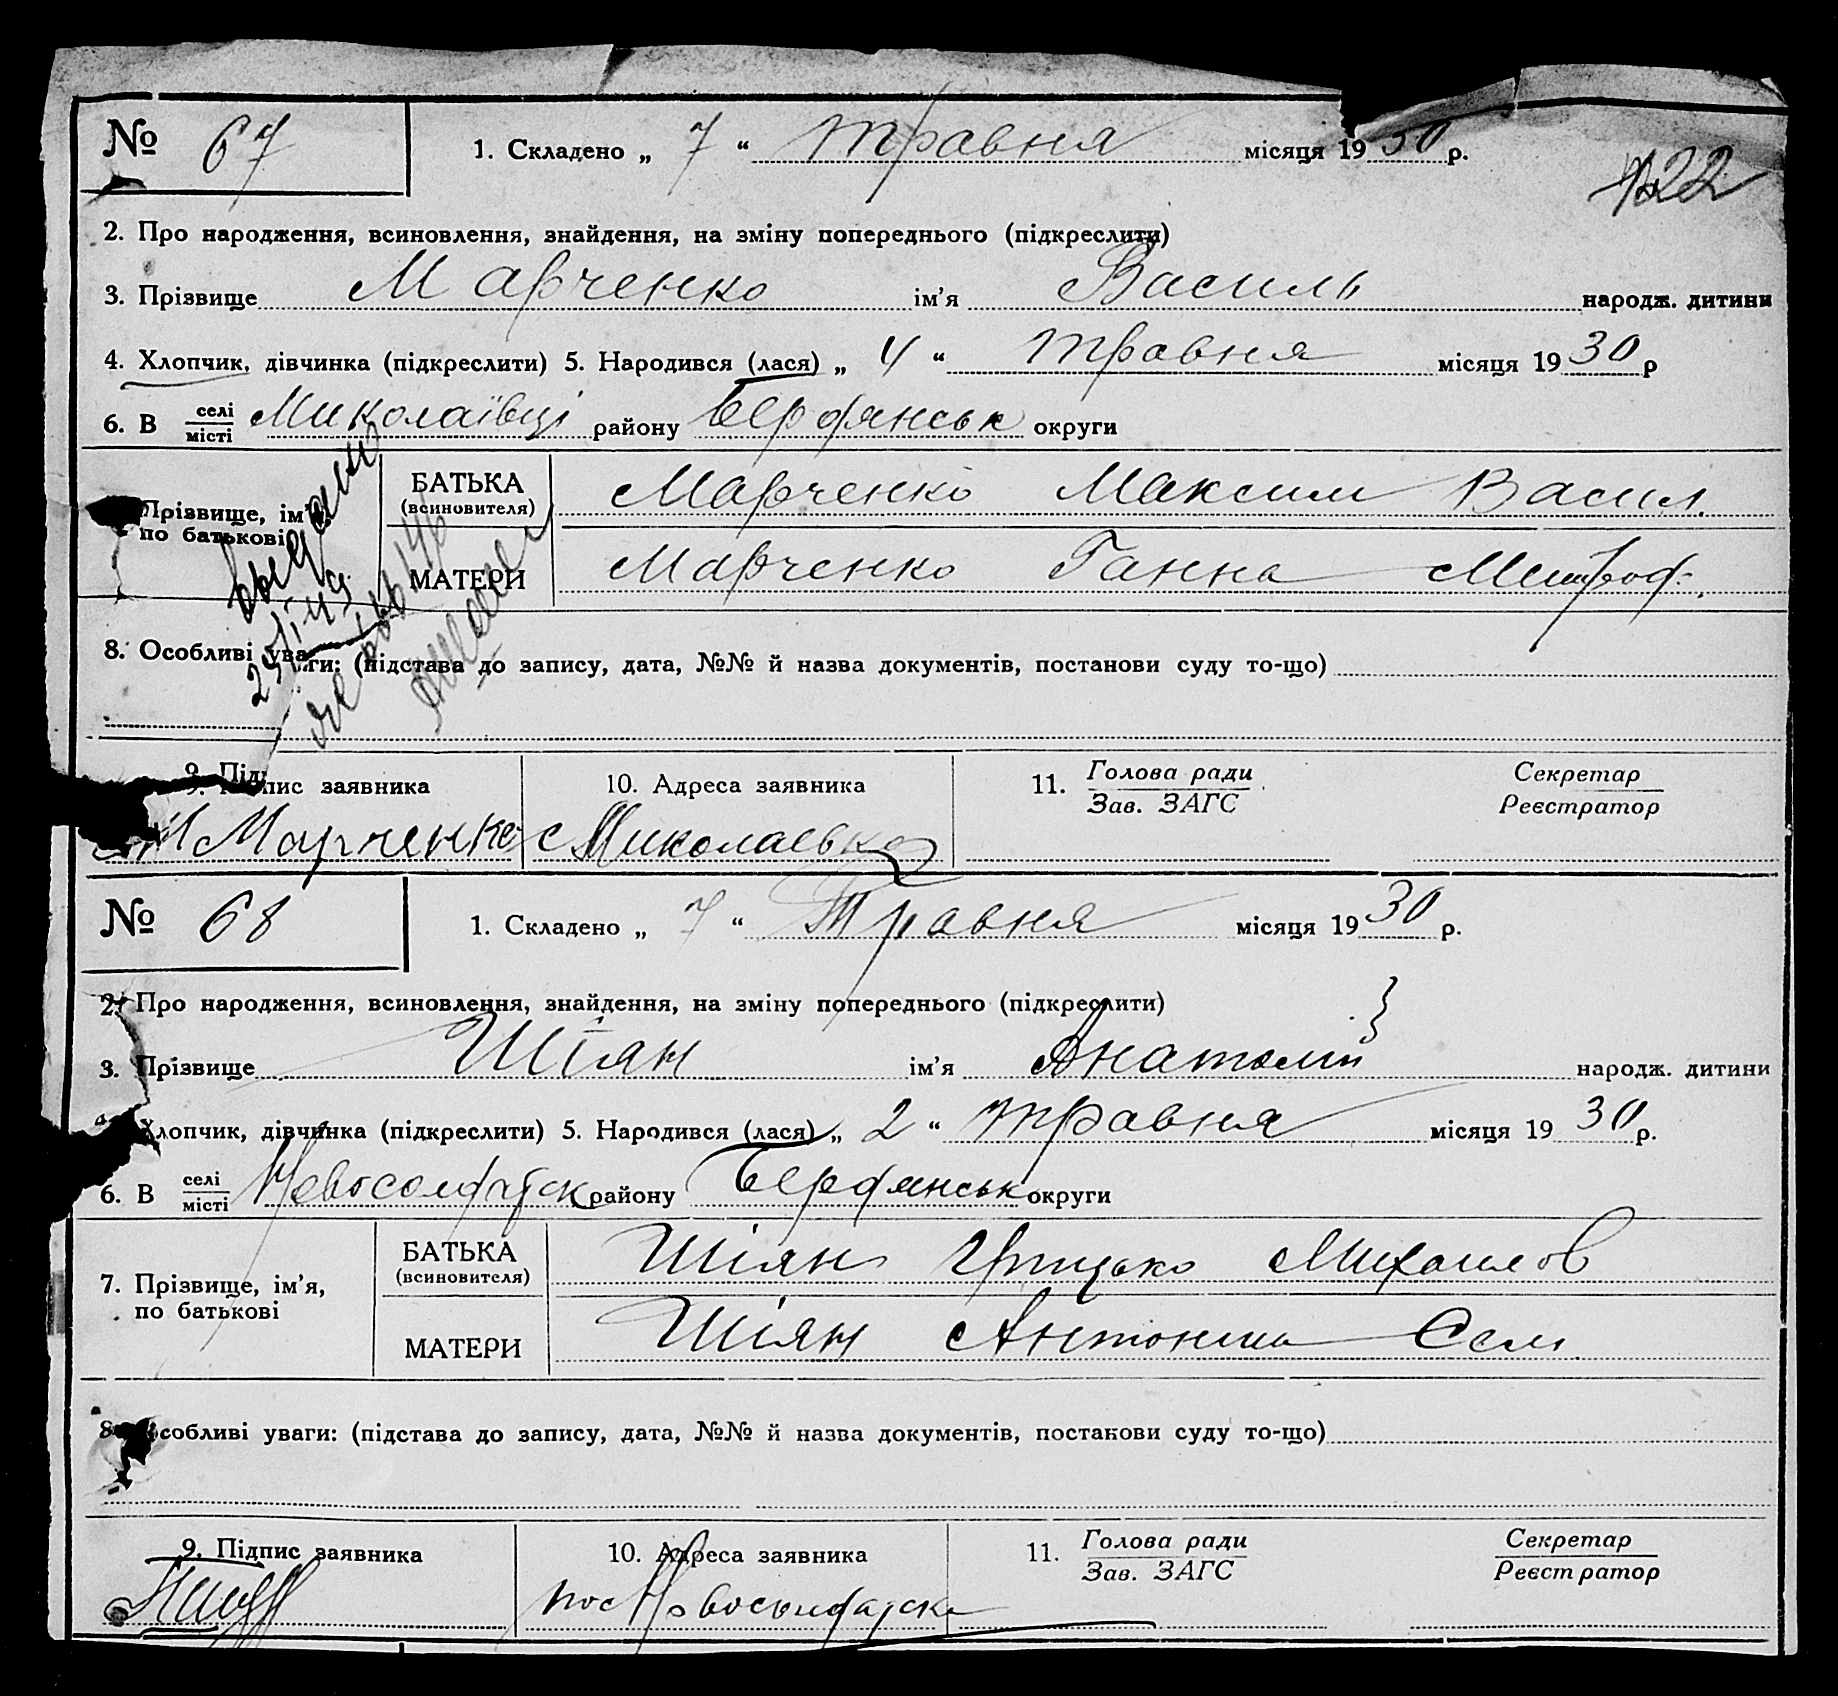 № 67 1. Складено „ 7 “ травня місяця 1930 р.
122
2. Про народження, всиновлення, знайдення, на зміну попереднього (підкреслити)
3. Прізвище Марченко ім’я Василь народж. дитини
4. Хлопчик, дівчинка (підкреслити) 5. Народився (лася) „ 4 “ травня місяця 1930 р
6. В селі/місті Миколаївці району Бердянськ округи
Прізвище, ім’я, по батькові
БАТЬКА (всиновителя) Марченко Максим Васил.
МАТЕРИ Марченко Ганна Митроф.
8. Особливі уваги: (підстава до запису, дата, №№ й назва документів, постанови суду то-що)
9. Підпис заявника 10. Адреса заявника 11. Голова ради/Зав. ЗАГС Секретар/Реєстратор
Марченко с Миколаевка
№ 68 1. Складено „ 7 “ Травня місяця 1930 р.
2. Про народження, всиновлення, знайдення, на зміну попереднього (підкреслити)
3. Прізвище Шіян ім’я Анатолій народж. дитини
Хлопчик, дівчинка (підкреслити) 5. Народився (лася) „ 2 “ травня місяця 1930 р.
6. В селі/місті Новосолдатск району Бердянськ округи
7. Прізвище, ім’я, по батькові
БАТЬКА (всиновителя) Шіян Грицько Михайлов
МАТЕРИ Шіян Антонина
8. Особливі уваги: (підстава до запису, дата, №№ й назва документів, постанови суду то-що)
9. Підпис заявника 10. Адреса заявника 11. Голова ради/Зав. ЗАГС Секретар/Реєстратор